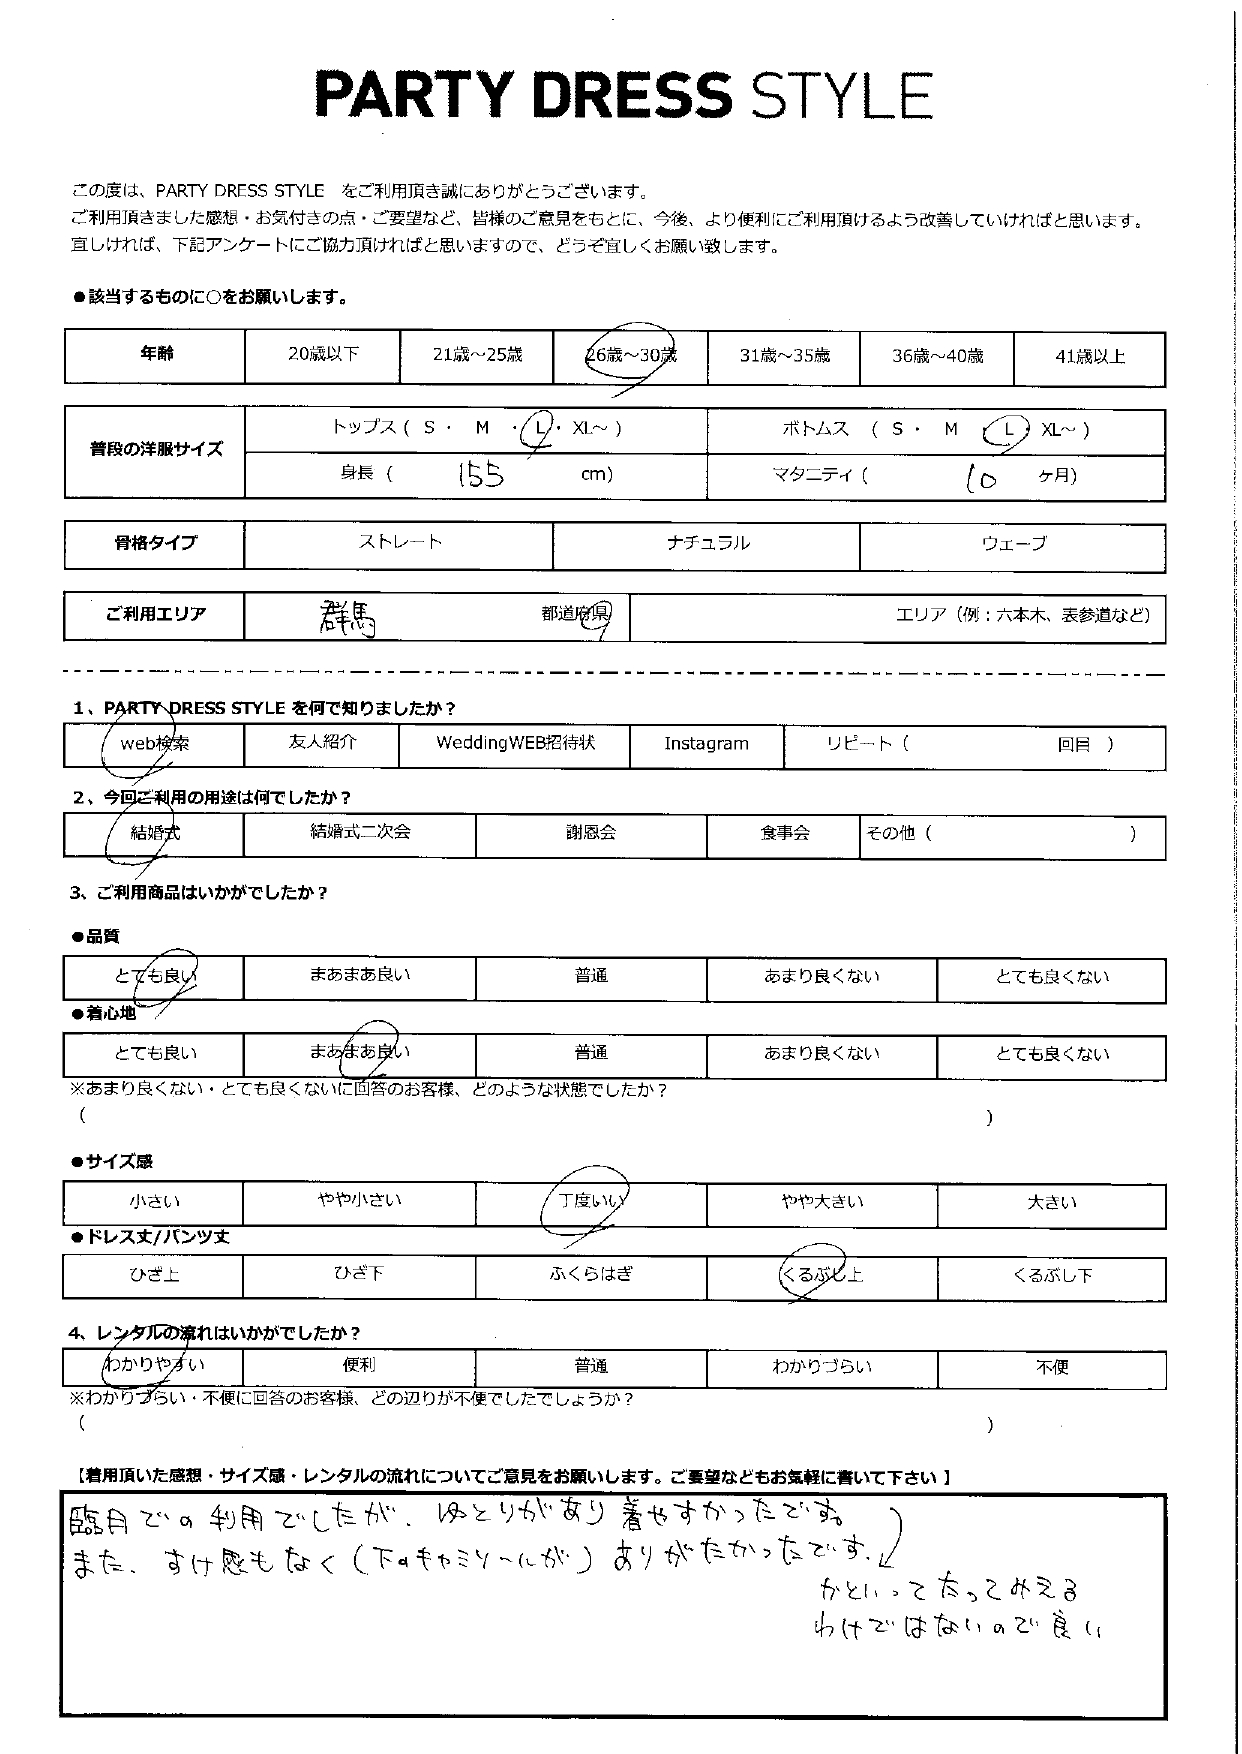 PARTY DRESS STYLE
この度は、PARTY DRESS STYLE をご利用頂き誠にありがとうございます。
ご利用頂きました感想・お気付きの点・ご要望など、皆様のご意見をもとに、今後、より便利にご利用頂けるよう改善していければと思います。
宜しければ、下記アンケートにご協力頂ければと思いますので、どうぞ宜しくお願い致します。
●該当するものに○をお願いします。
年齢 20歳以下 21歳～25歳 26歳～30歳 31歳～35歳 36歳～40歳 41歳以上
普段の洋服サイズ
トップス ( S ・ M ・ L ・ XL～ ) ボトムス ( S ・ M ・ L ・ XL～ )
身長 ( 155 cm) マタニティ ( 10 ヶ月)
骨格タイプ ストレート ナチュラル ウェーブ
ご利用エリア 群馬 都道府県 エリア（例：六本木、表参道など）
1、PARTY DRESS STYLE を何で知りましたか？
web検索 友人紹介 WeddingWEB招待状 Instagram リピート ( 回目 )
2、今回ご利用の用途は何でしたか？
結婚式 結婚式二次会 謝恩会 食事会 その他 ( )
3、ご利用商品はいかがでしたか？
●品質
とても良い まあまあ良い 普通 あまり良くない とても良くない
●着心地
とても良い まあまあ良い 普通 あまり良くない とても良くない
※あまり良くない・とても良くないに回答のお客様、どのような状態でしたか？
( )
●サイズ感
小さい やや小さい 丁度いい やや大きい 大きい
●ドレス丈/パンツ丈
ひざ上 ひざ下 ふくらはぎ くるぶし上 くるぶし下
4、レンタルの流れはいかがでしたか？
わかりやすい 便利 普通 わかりづらい 不便
※わかりづらい・不便に回答のお客様、どの辺りが不便でしたでしょうか？
( )
【着用頂いた感想・サイズ感・レンタルの流れについてご意見をお願いします。ご要望などもお気軽に書いて下さい 】
臨月での利用でしたが、ゆとりがあり着やすかったです。
また、すけ感もなく（下のキャミソールが）ありがたかったです。
かといって太ってみえる
わけではないので良い